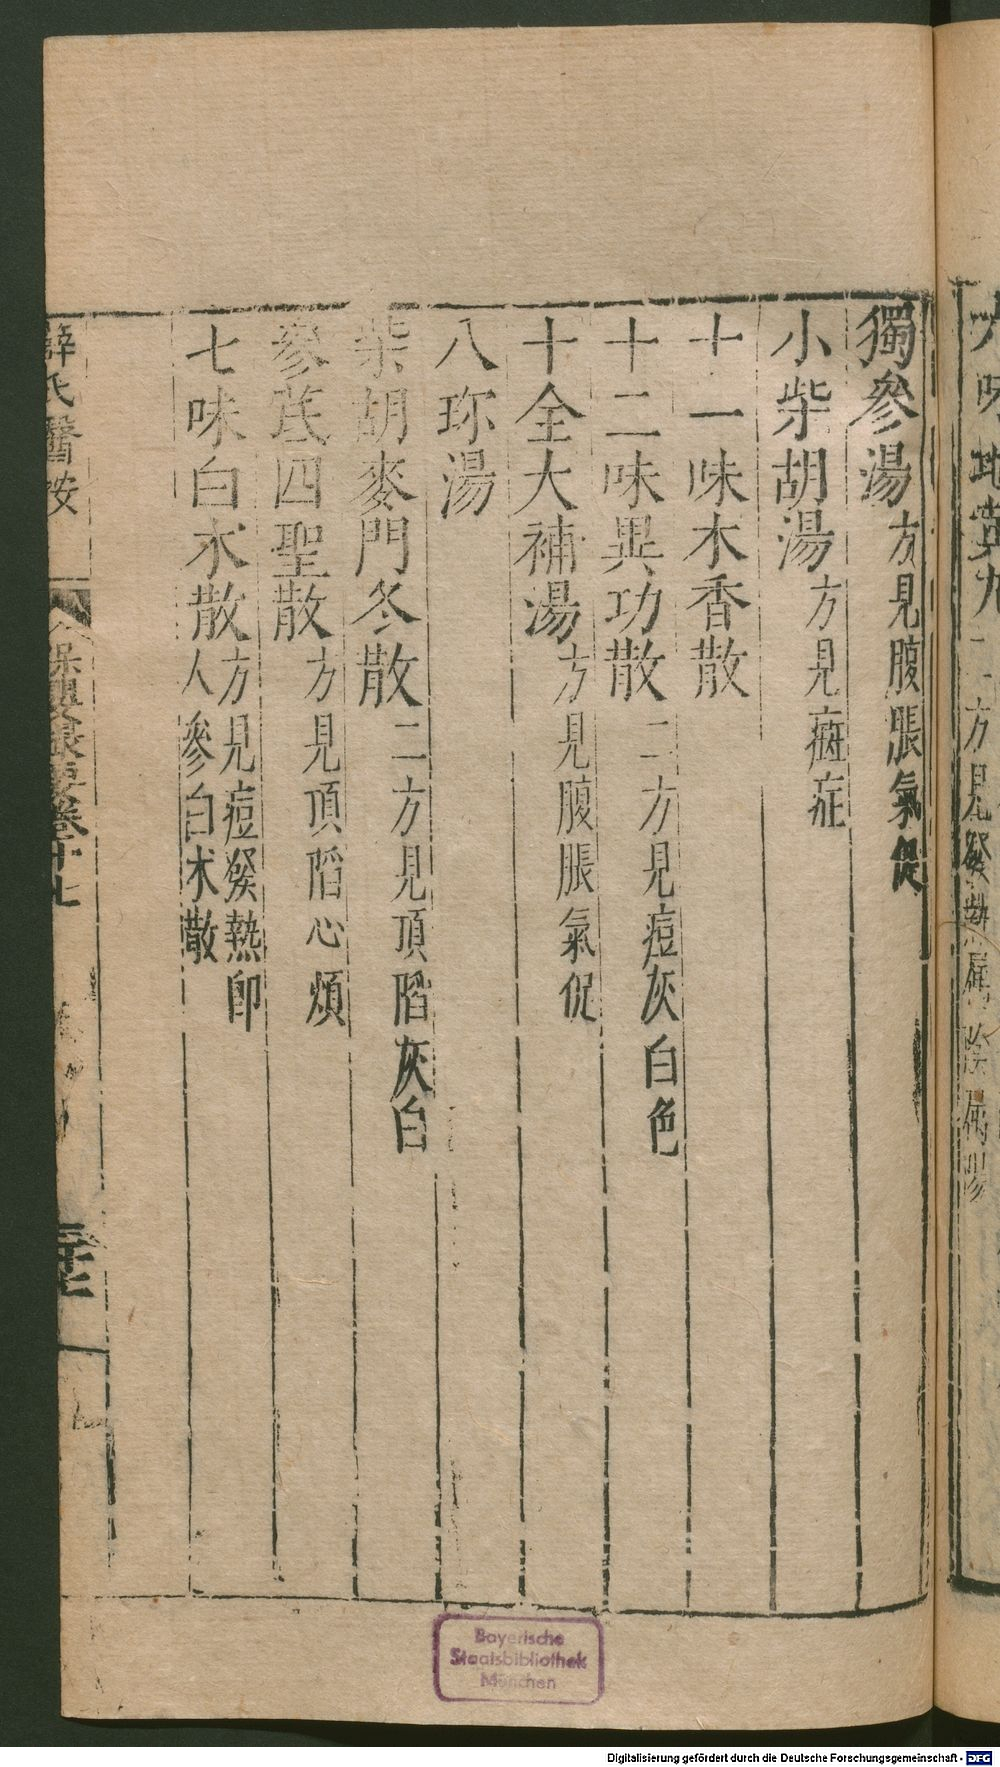 獨參湯方見腹脹氣促
小柴胡湯方見痘症
十一味木香散
十二味異功散二方見痘灰白色
十全大補湯方見腹脹氣促
八珎湯
柴胡麥門冬散二方見頂陷灰白
參芪四聖散方見頂陷心煩
七味白术散方見痘發熱卽
人參白术散
薛氏醫按
保嬰撮要卷十七
Bayerische
Staatsbibliothek
München
Digitalisierung gefördert durch die Deutsche Forschungsgemeinschaft - DFG